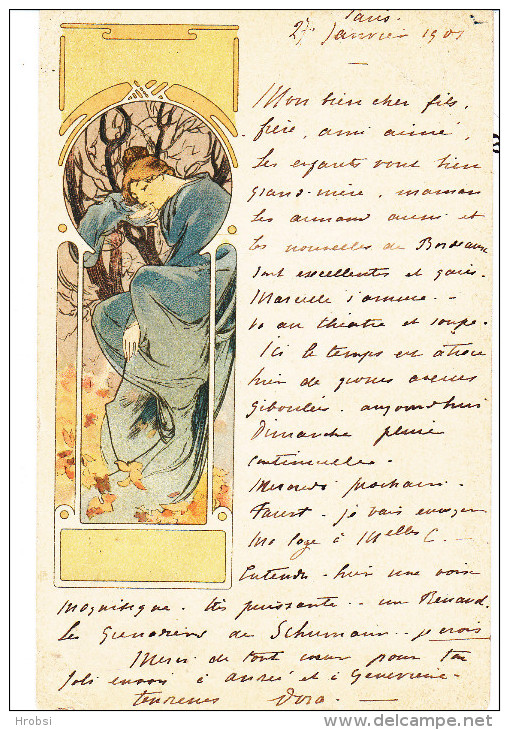 Paris.
27 Janvier 1901
Mon bien cher fils,
frère, ami aimé,
Les enfants vont bien
grand-mère, maman
les Armand aussi et
les nouvelles de Bordeaux
sont excellentes et gaies.
Marcelle s'amuse. -
va au théâtre et soupe.
Ici le temps est
hier de grosses averses
Giboulées. aujourd'hui
Dimanche pluie
continuelle.
Mercredi prochain.
Faust. je vais envoyer
Ma loge à Melles C. -
Entendu. hier une voix
magnifique. très puissante. un Renaud.
Les Grenadiers de Schumann.. je crois
Merci de tout cœur pour ton
joli envoi à André et à Geneviève
tendresses Dora. -
Hrobsi
www.delcampe.net